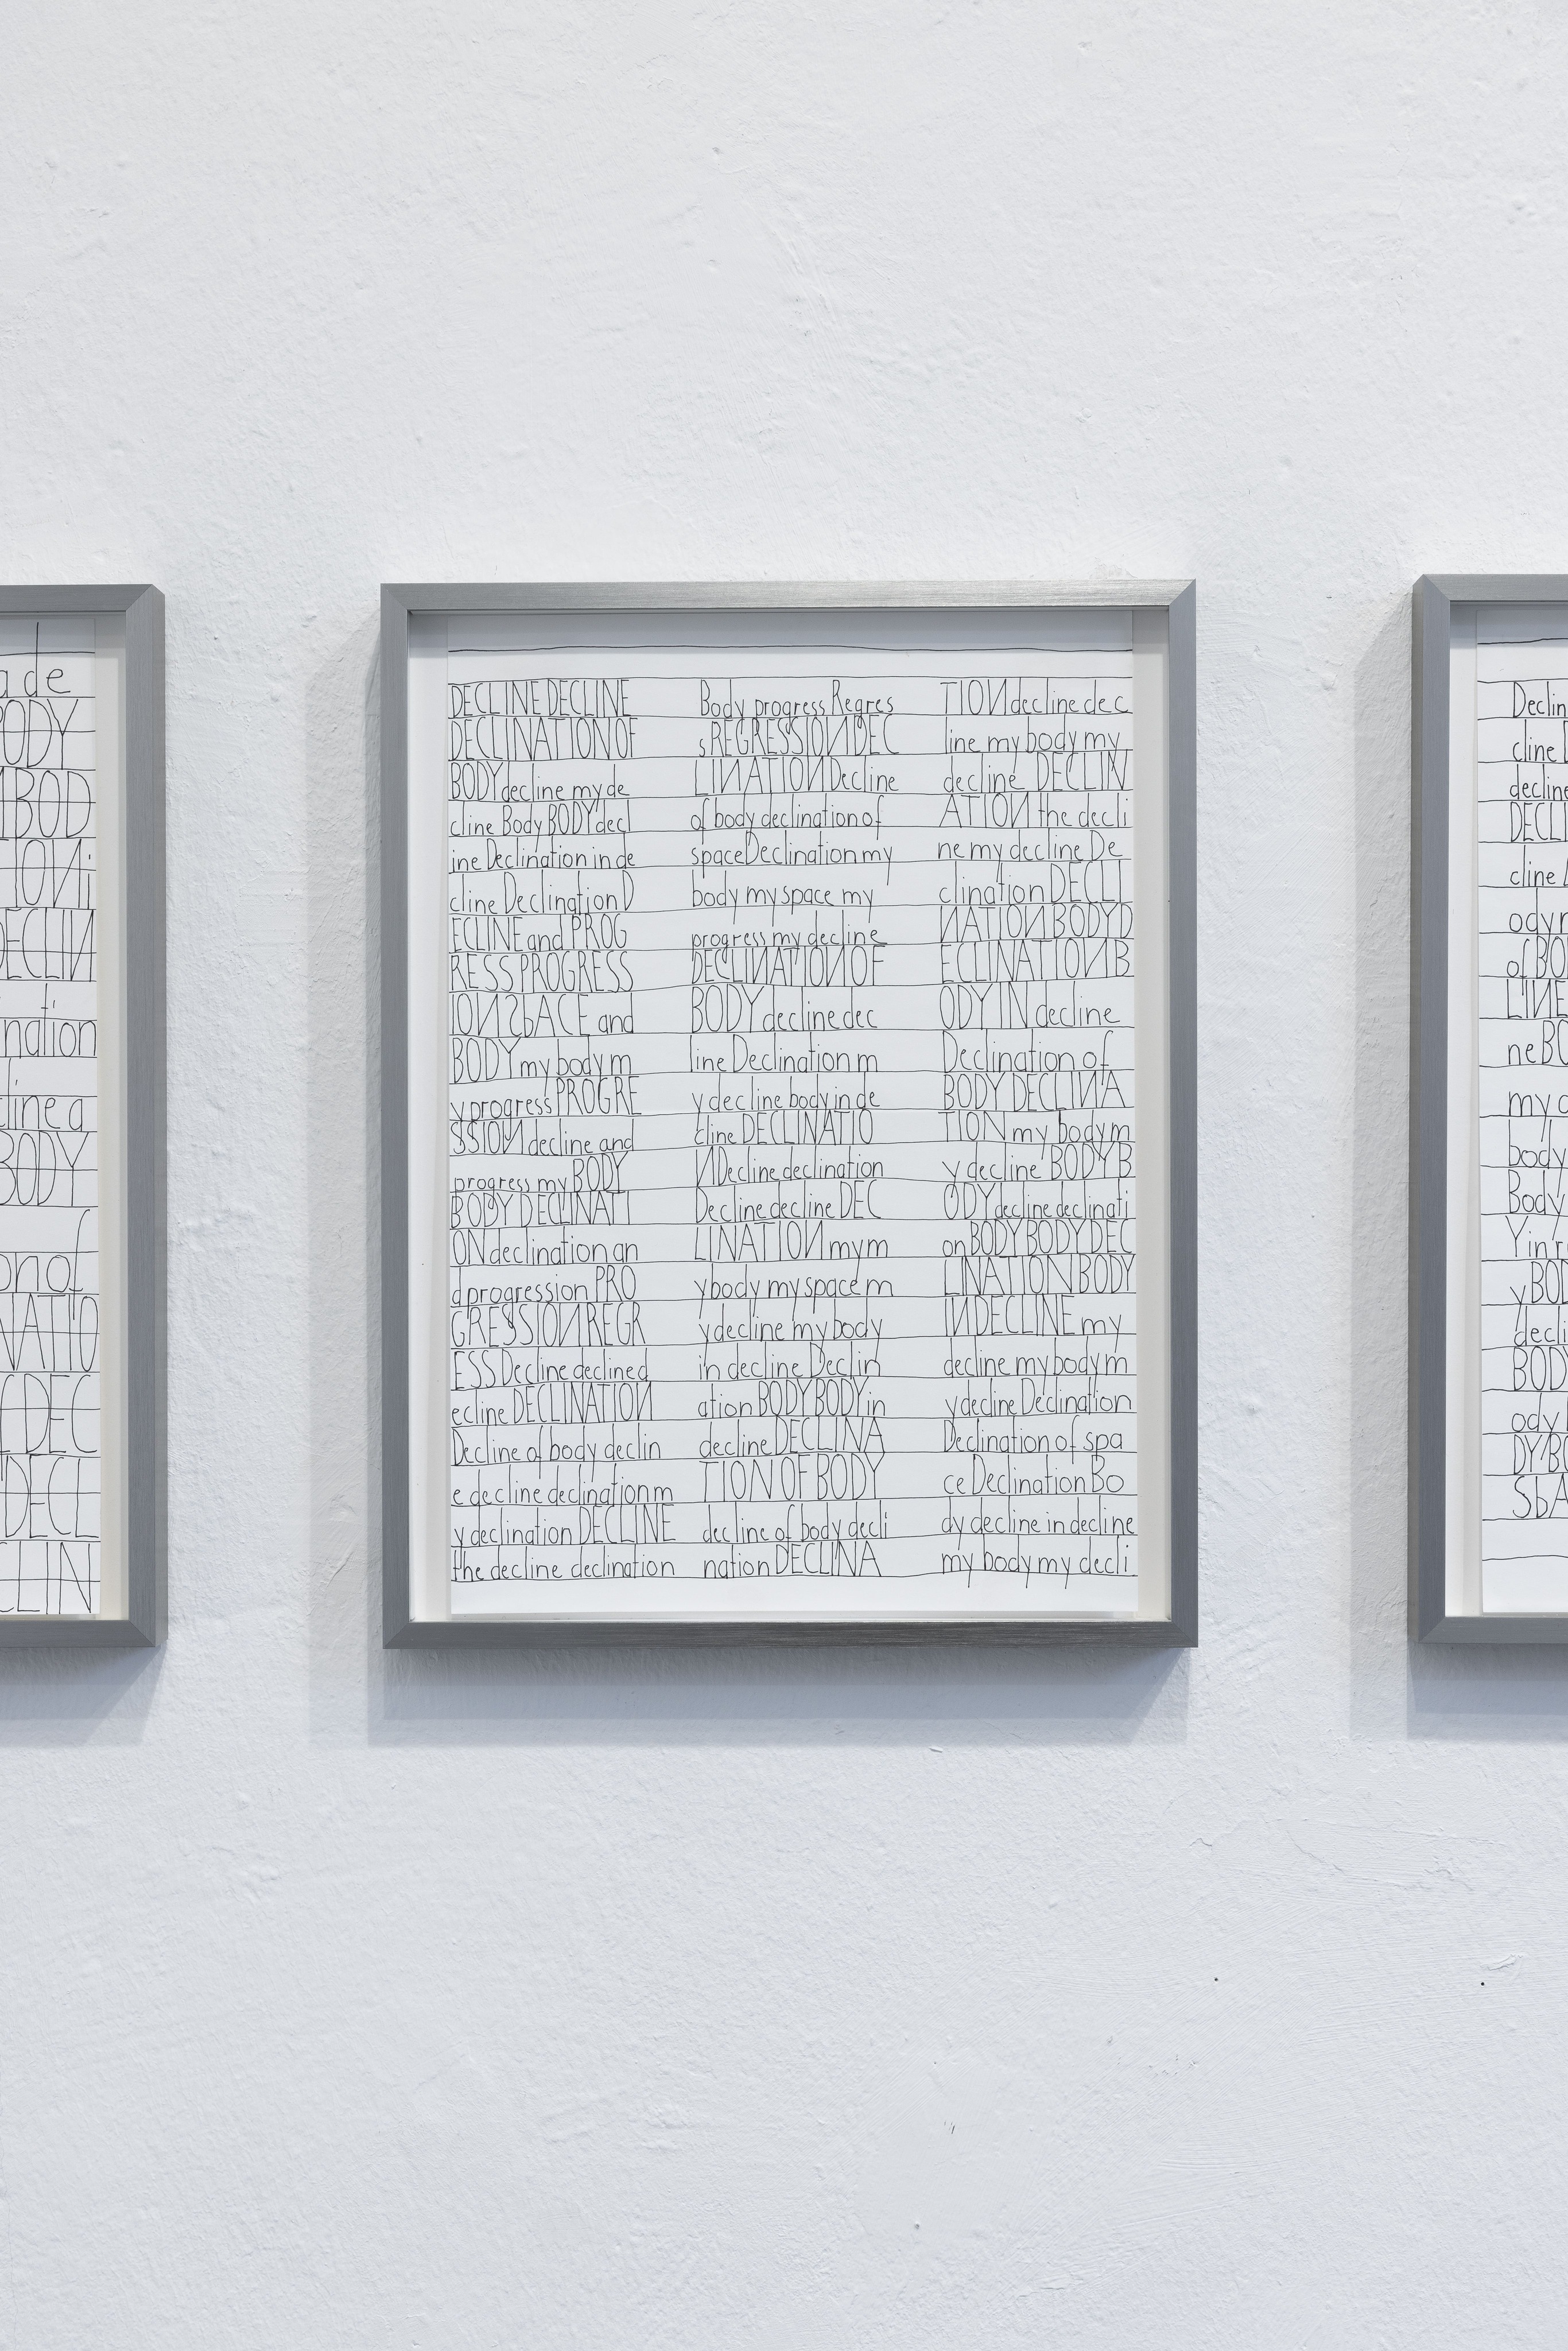 a de
BODY
BOD
IOИi
DECLIИ
nation
cline a
BODY
on of
NATIO
DEC
DECL
CLIN
DECLINE DECLINE
DECLINATION OF
BODY decline my de
cline Body BODY decl
ine Declination in de
cline Declination D
ECLINE and PROG
RESS PROGRESS
IOИ SPACE and
BODY my body m
y progress PROGRE
SSIOИ decline and
progress my BODY
BODY DECLINATI
ON declination an
d progression PRO
GRESSIOИ REGR
ESS Decline declined
ecline DECLINATIOИ
Decline of body declin
e decline declination m
y declination DECLINE
the decline declination
Body progress Regres
s REGRESSIOИ DEC
LIИATIOИ Decline
of body declination of
space Declination my
body my space my
progress my decline
DECLIИATIOИ OF
BODY decline dec
line Declination m
y decline body in de
cline DECLINATIO
И Decline declination
Decline decline DEC
LINATIOИ my m
y body my space m
y decline my body
in decline Declin
ation BODY BODY in
decline DECLINA
TION OF BODY
decline of body decli
nation DECLINA
TIOИ decline dec
line my body my
decline DECLIN
ATIOИ the decli
ne my decline De
clination DECLI
ИATIOИ BODY D
ECLINATIOИ B
ODY IN decline
Declination of
BODY DECLIИA
TION my body m
y decline BODY B
ODY decline declinati
on BODY BODY DEC
LINATION BODY
IИ DECLINE my
decline my body m
y decline Declination
Declination of spa
ce Declination Bo
dy decline in decline
my body my decli
Declin
cline
decline
DECLI
cline
ody
of BO
LIИE
ne BO
my
body
Body
Y in
y BOD
decli
BODY
ody
DY BO
SPA